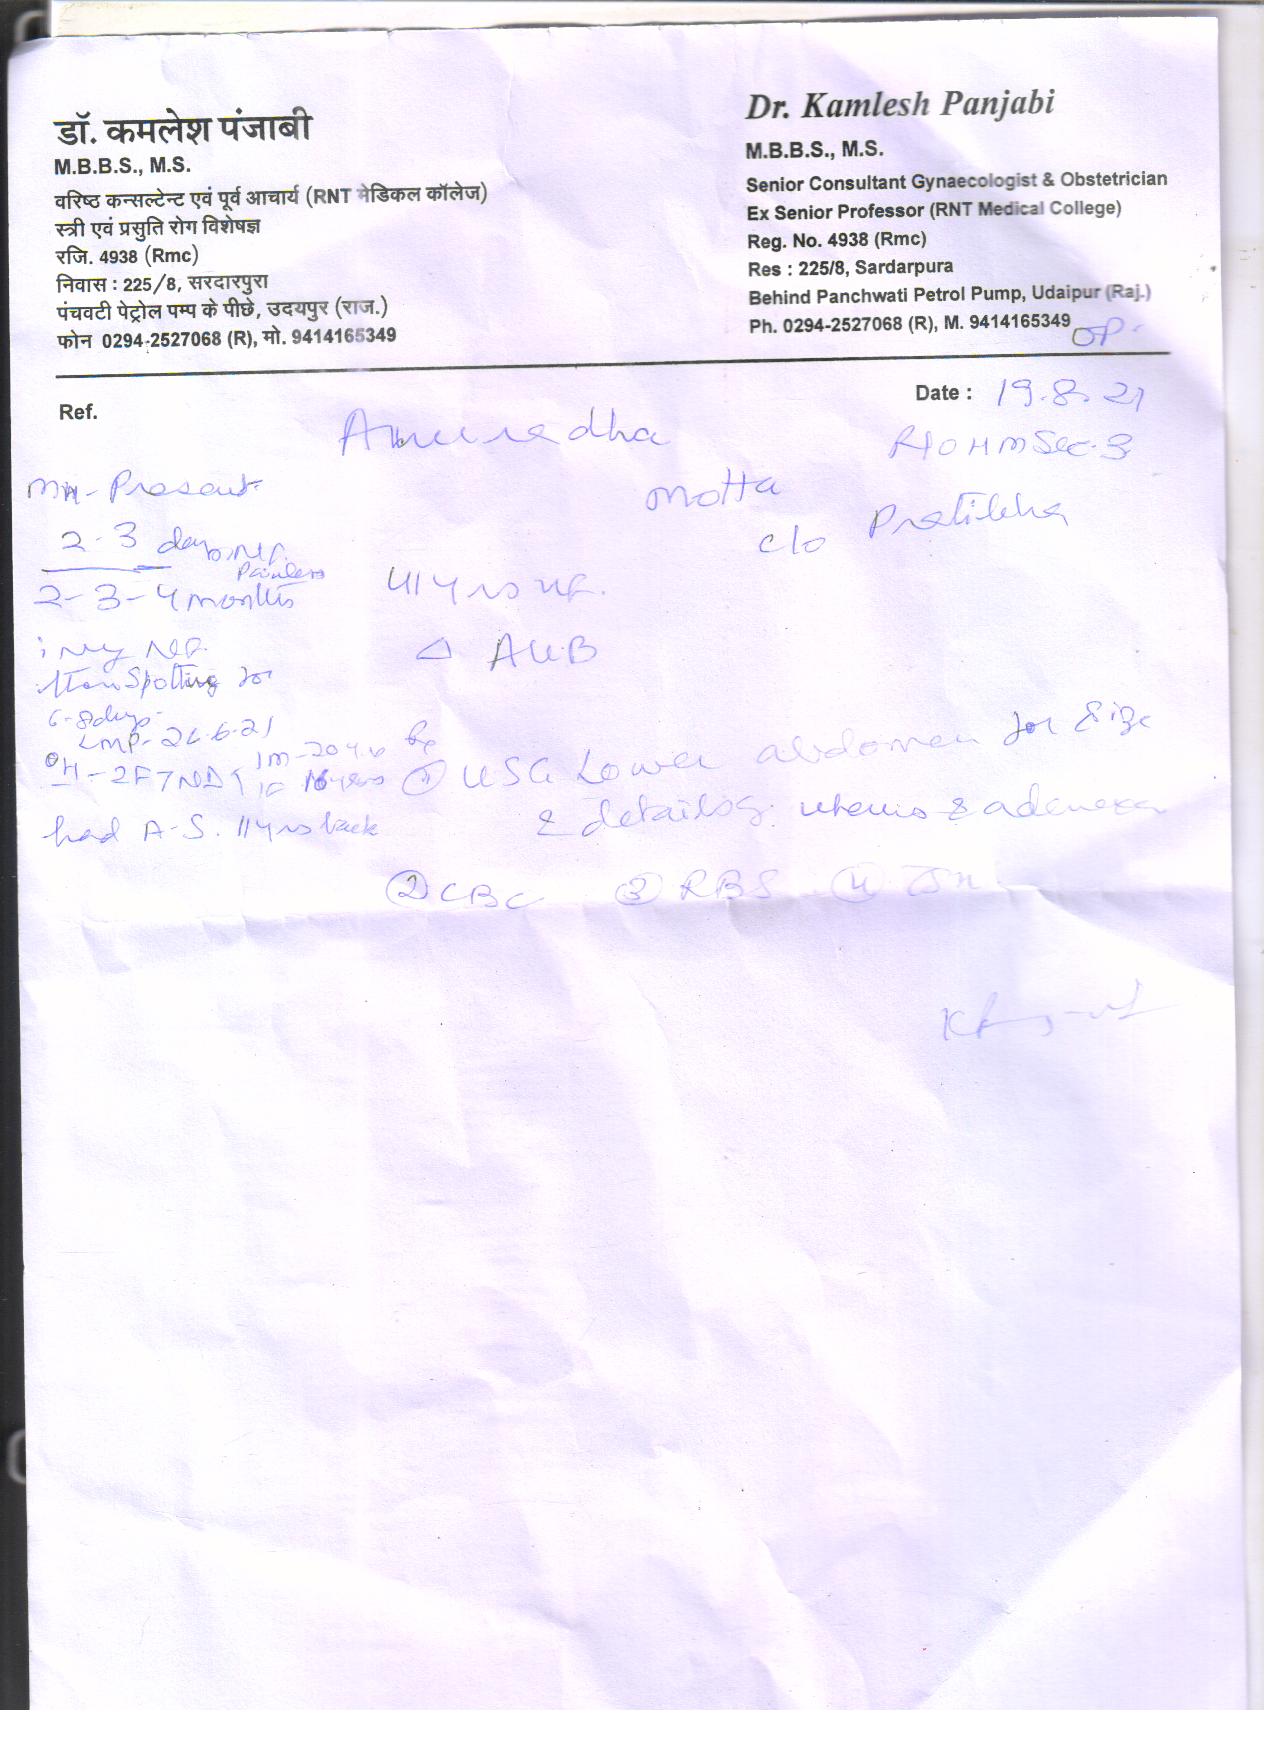 डॉ. कमलेश पंजाबी
M.B.B.S., M.S.
वरिष्ठ कन्सल्टेन्ट एवं पूर्व आचार्य (RNT मेडिकल कॉलेज)
स्त्री एवं प्रसुति रोग विशेषज्ञ
रजि. 4938 (Rmc)
निवास : 225/8, सरदारपुरा
पंचवटी पेट्रोल पम्प के पीछे, उदयपुर (राज.)
फोन 0294-2527068 (R), मो. 9414165349
Dr. Kamlesh Panjabi
M.B.B.S., M.S.
Senior Consultant Gynaecologist & Obstetrician
Ex Senior Professor (RNT Medical College)
Reg. No. 4938 (Rmc)
Res : 225/8, Sardarpura
Behind Panchwati Petrol Pump, Udaipur (Raj.)
Ph. 0294-2527068 (R), M. 9414165349
Ref.
Date : 19.8.21
Anuradha
R/O HM Sec-3
Motta
c/o Pratibha
MH- Present
2-3 days
Painless
2-3-4 months
Spotting for
6-8 days
LMP- 26.6.21
41 yrs
△ AUB
OH- 2FTND
had A-S. 11 yrs back
① USG Lower abdomen for size
& details of uterus & adenexa
② CBC ③ RBS ④